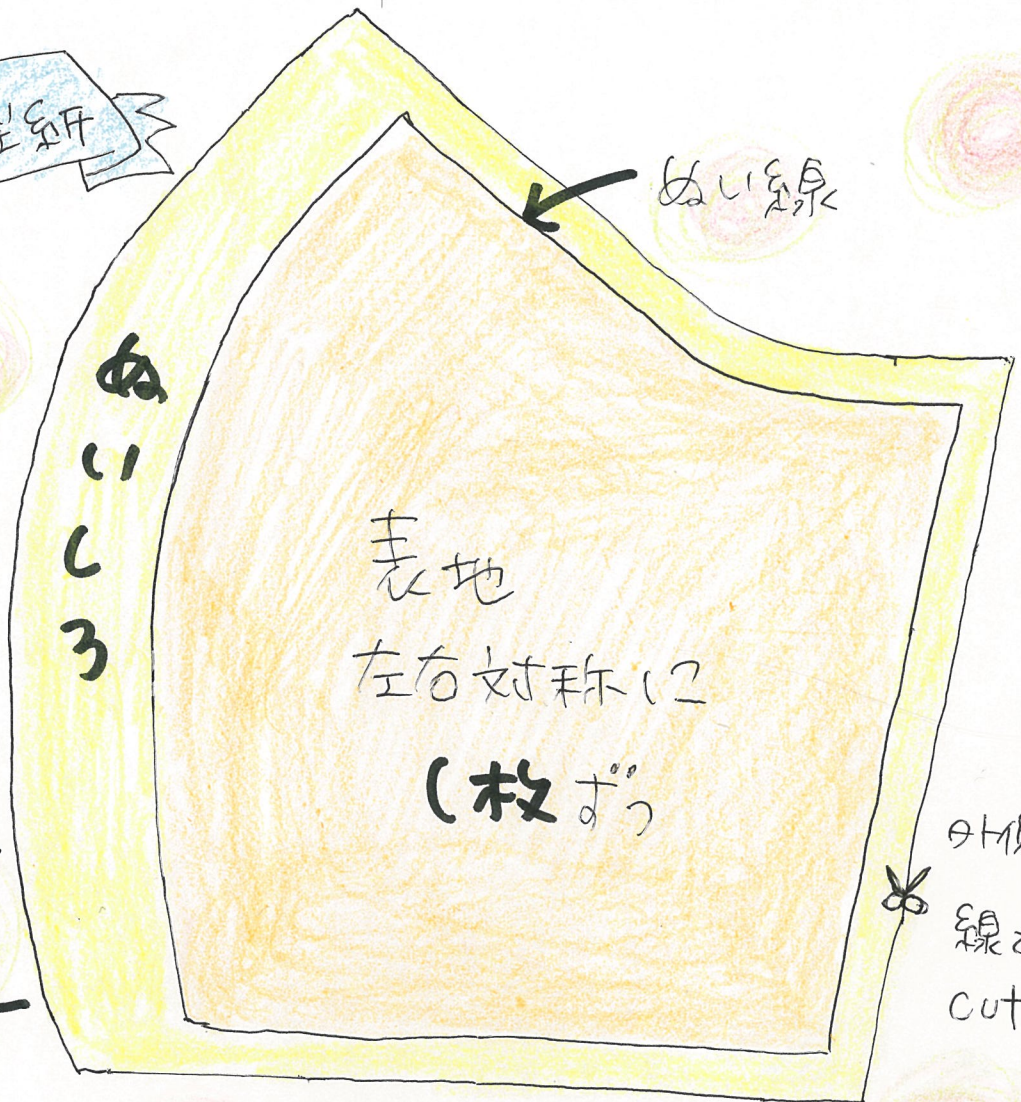 型紙
ぬい線
ぬいしろ
表地
左右対称に
1枚ずつ
外側
線で
cut